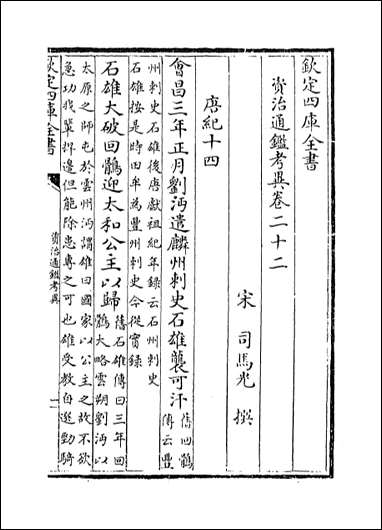 欽定四庫全書
資治通鑑考異卷二十二
宋 司馬光 撰
唐紀十四
會昌三年正月劉沔遣麟州刺史石雄襲可汗舊回鶻傳云豐
州刺史石雄後唐獻祖紀年録云石州刺史
石雄按是時田牟為豐州刺史今從實録
石雄大破回鶻迎太和公主以歸舊石雄傳曰三年回鶻大略雲朔劉沔以
太原之師屯於雲州沔謂雄曰國家以公主之故不欲
急功我輩捍邊但能除患專之可也雄受教自選勁騎
欽定四庫全書
資治通鑑考異
一